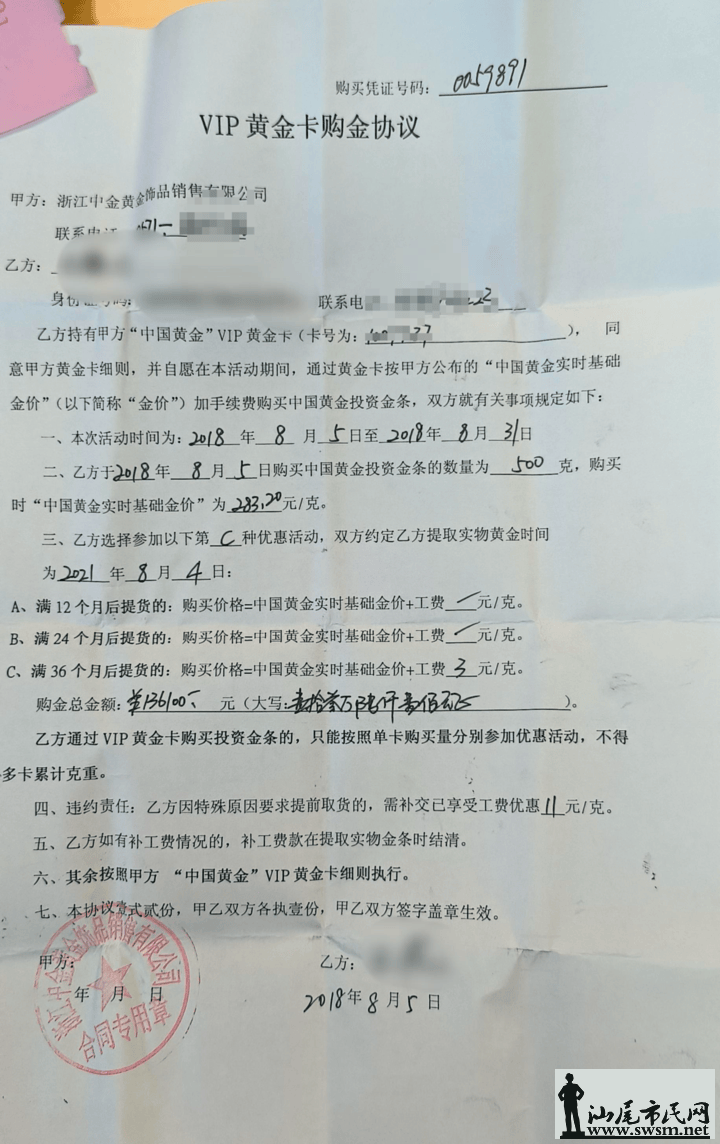 购买凭证号码：0059891
VIP 黄金卡购金协议
甲方：浙江中金黄金饰品销售有限公司
联系电话：0571-
乙方：
身份证号码： 联系电
乙方持有甲方“中国黄金”VIP 黄金卡（卡号为： ），同
意甲方黄金卡细则，并自愿在本活动期间，通过黄金卡按甲方公布的“中国黄金实时基础
金价”（以下简称“金价”）加手续费购买中国黄金投资金条，双方就有关事项规定如下：
一、本次活动时间为：2018 年 8 月 5 日至 2018 年 8 月 31 日
二、乙方于 2018 年 8 月 5 日购买中国黄金投资金条的数量为 500 克，购买
时“中国黄金实时基础金价”为 283.20 元/克。
三、乙方选择参加以下第 C 种优惠活动，双方约定乙方提取实物黄金时间
为 2021 年 8 月 4 日：
A、满 12 个月后提货的：购买价格=中国黄金实时基础金价+工费 / 元/克。
B、满 24 个月后提货的：购买价格=中国黄金实时基础金价+工费 / 元/克。
C、满 36 个月后提货的：购买价格=中国黄金实时基础金价+工费 3 元/克。
购金总金额：¥136100 元（大写：壹拾叁万陆仟壹佰元 ）。
乙方通过 VIP 黄金卡购买投资金条的，只能按照单卡购买量分别参加优惠活动，不得
多卡累计克重。
四、违约责任：乙方因特殊原因要求提前取货的，需补交已享受工费优惠 11 元/克。
五、乙方如有补工费情况的，补工费款在提取实物金条时结清。
六、其余按照甲方 “中国黄金”VIP 黄金卡细则执行。
七、本协议壹式贰份，甲乙双方各执壹份，甲乙双方签字盖章生效。
甲方： 乙方：
年 月 日 2018 年 8 月 5 日
浙江中金黄金饰品销售有限公司
合同专用章
汕尾市民网
www.swsm.net